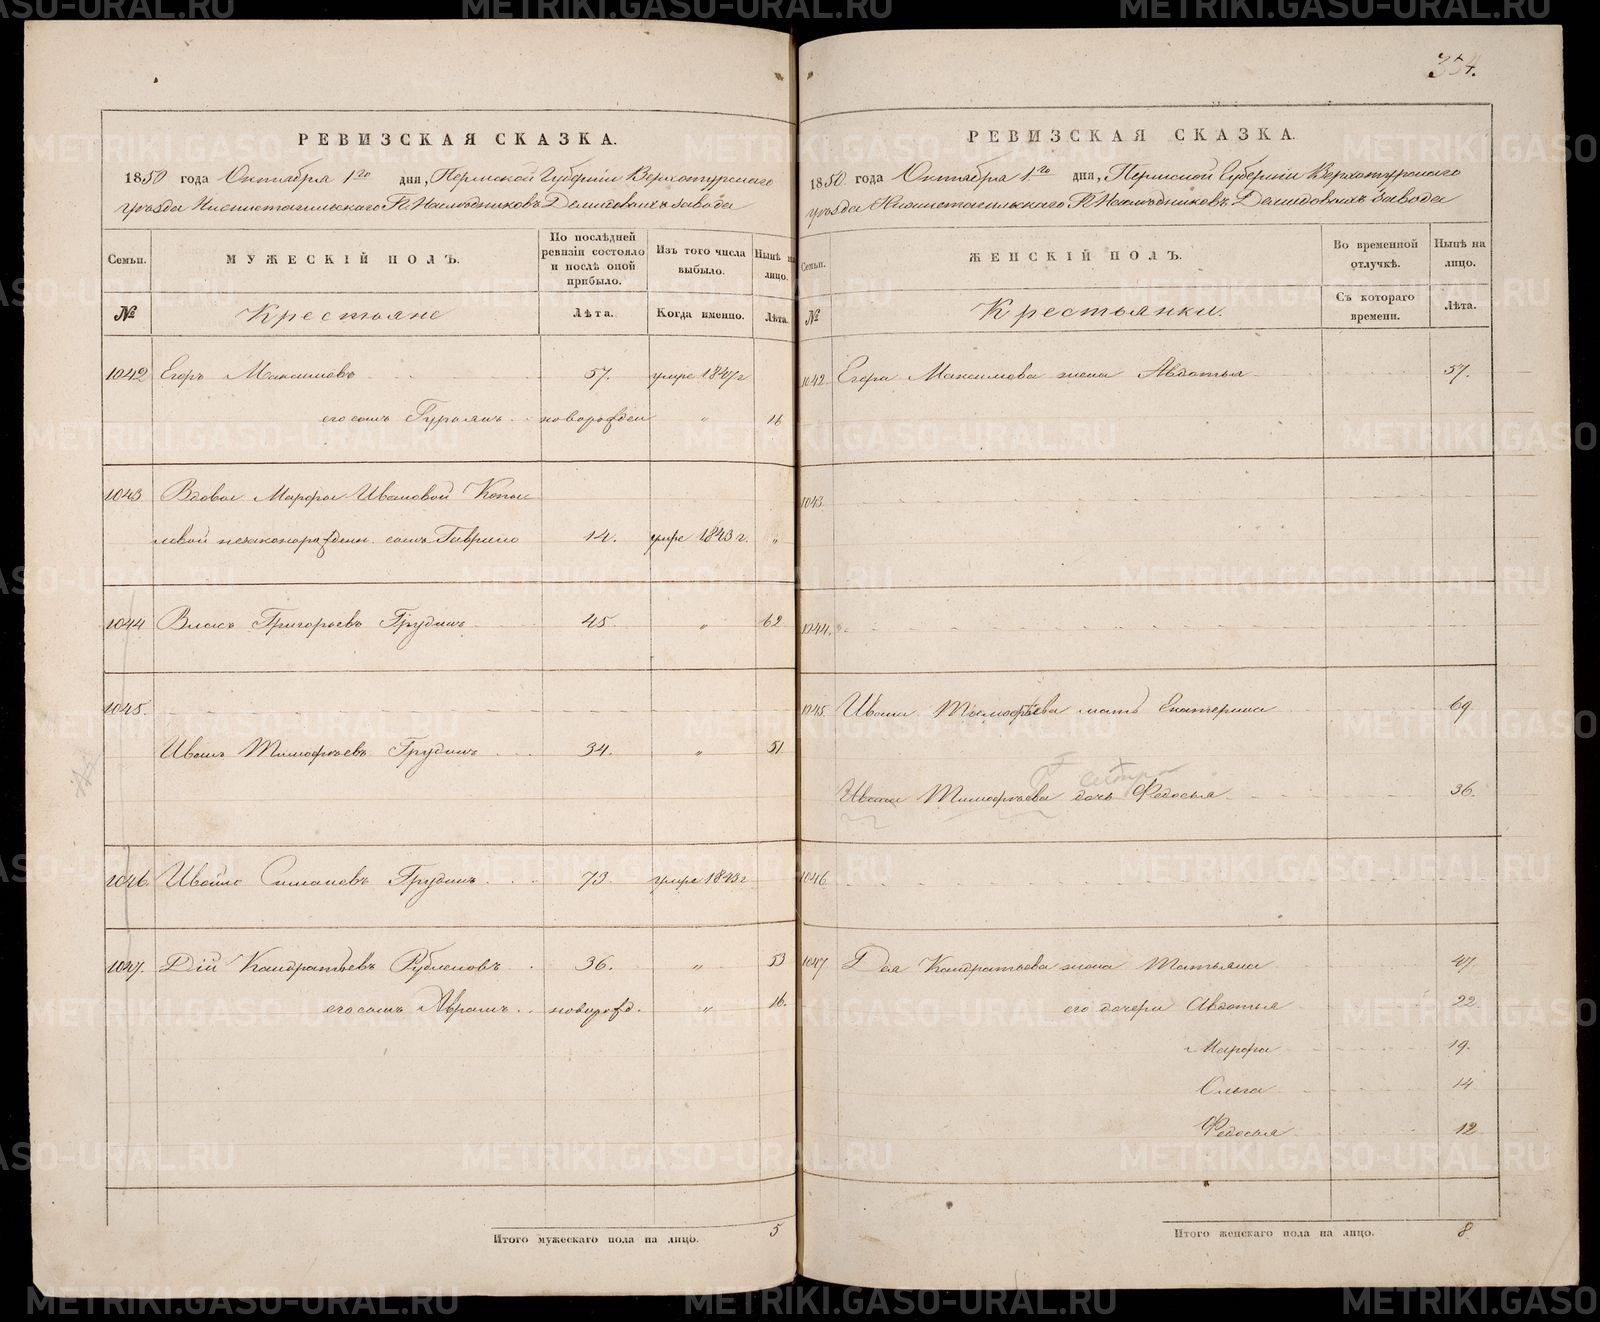 354.
РЕВИЗСКАЯ СКАЗКА.
1850 года Октября 1го дня, Пермской Губернiи Верхотурскаго
уѣзда Нижнетагильскаго Г. Наслѣдниковъ Демидовыхъ завода
Семьи.
МУЖЕСКIЙ ПОЛЪ.
По послѣдней ревизiи состояло и послѣ оной прибыло.
Изъ того числа выбыло.
Нынѣ на лицо.
№
Крестьяне
Лѣта.
Когда именно.
Лѣта.
1042 Егоръ Максимовъ 57. умре 1847 г
его сынъ новорожден „ 16
1043 Вдовы Марфы Ивановой
незаконорожден. сынъ Гаврило 14. умре 1843 г. „
1044 Власъ Григорьевъ Грудинъ 45 „ 62
1045.
Иванъ Тимофѣевъ Грудинъ 34. „ 51
1046. Грудинъ 73. умре 1843 г
1047. Дiй Кандратьевъ Рублевовъ 36. „ 53
его сынъ Аврамъ новорожд. „ 16.
Итого мужескаго пола на лицо. 5
РЕВИЗСКАЯ СКАЗКА.
1850 года Октября 1го дня, Пермской Губернiи Верхотурскаго
уѣзда Нижнетагильскаго Г. Наслѣдниковъ Демидовыхъ завода
Семьи.
ЖЕНСКIЙ ПОЛЪ.
Во временной отлучкѣ.
Нынѣ на лицо.
№
Крестьянки.
Съ котораго времени.
Лѣта.
1042 Егора Максимова жена Авдотья 57.
1043
1044.
1045. Ивана Тимофѣева мать Екатерина 69
сестра
Ивана Тимофѣева дочь Федосья 36.
1046
1047 Дiя Кандратьева жена Татьяна 47
его дочери Авдотья 22
Марфа 19.
Ольга 14
Федосья 12
Итого женскаго пола на лицо. 8
METRIKI.GASO-URAL.RU